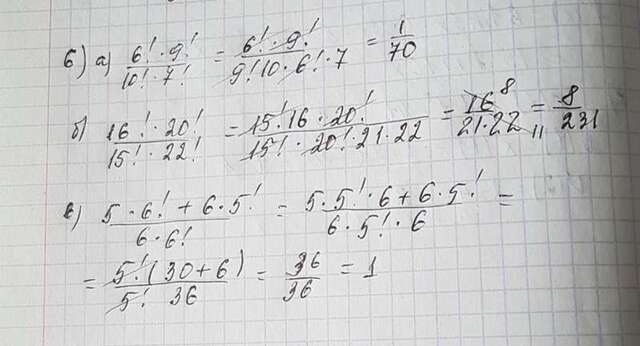 6) а) 6!·9! / 10!·7! = 6!·9! / 9!10·6!·7 = 1/70
б) 16!·20! / 15!·22! = 15!16·20! / 15!·20!·21·22 = 16 8 / 21·22 11 = 8/231
в) 5·6!+6·5! / 6·6! = 5·5!·6+6·5! / 6·5!·6 =
= 5!(30+6) / 5! 36 = 36/36 = 1